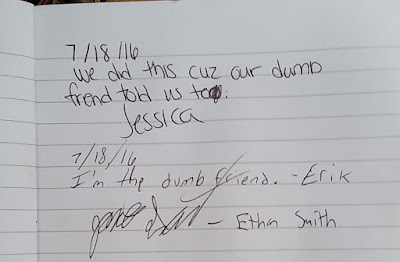 7/18/16
we did this cuz our dumb
frend told us to.
Jessica
7/18/16
I'm the dumb friend. -Erik
- Ethan Smith